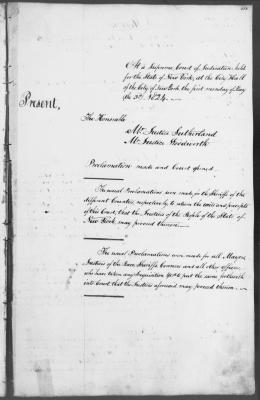 At a Supreme Court of Judicature held
for the State of New York, at the City Hall
of the City of New York the first monday of May
the 3d. 1824.
Present,
The Honorable
Mr. Justice Sutherland
Mr. Justice Woodworth
Proclamation made and Court opened
The usual Proclamations were made, for the Sheriffs of the
different Counties, respectively to return the writs and precepts
of this Court, that the Justices of the People of the State of
New York may proceed thereon.
The usual Proclamations were made for all Mayors
Justices of the Peace, Sheriffs, Coroners and all other officers
who have taken any Inquisition &c to put the same forthwith
into Court that the Justices aforesaid may proceed thereon.